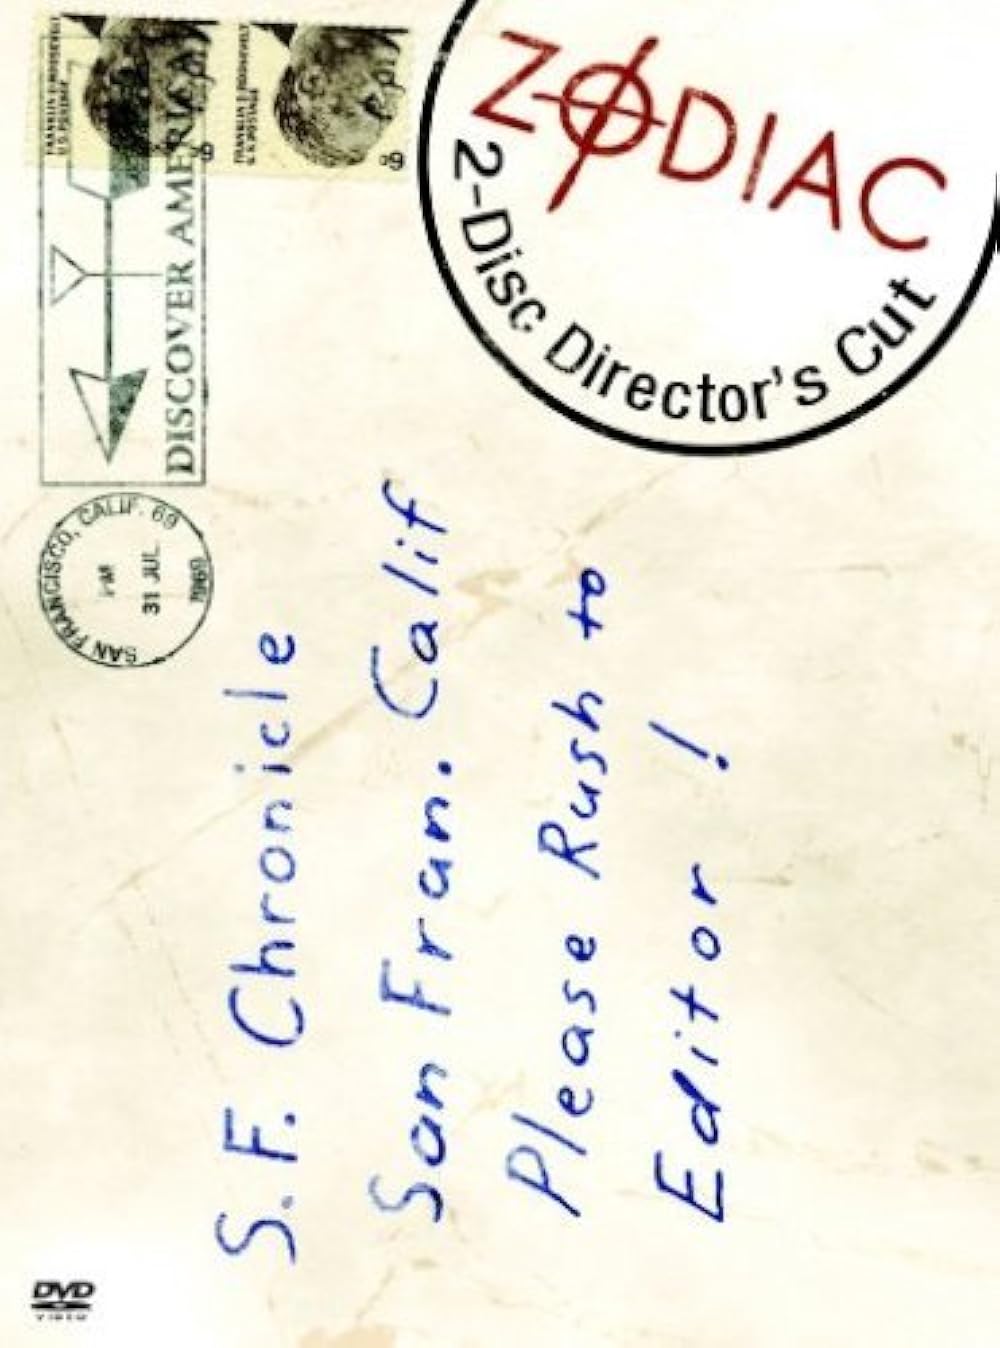 ZODIAC
2-Disc Director's Cut
FRANKLIN D. ROOSEVELT
U.S. POSTAGE
6¢
FRANKLIN D. ROOSEVELT
U.S. POSTAGE
6¢
DISCOVER AMERICA
SAN FRANCISCO, CALIF. 69
PM
31 JUL
1969
S.F. Chronicle
San Fran. Calif
Please Rush to
Editor!
DVD
VIDEO